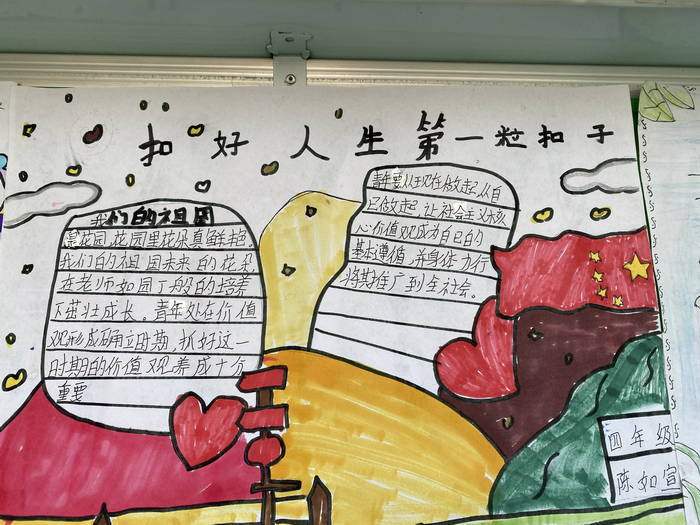 扣好人生第一粒扣子
我们的祖国
是花园,花园里花朵真鲜艳。
我们的祖国未来的花朵
在老师如园丁般的培养
下茁壮成长。青年处在价值
观形成确立时期,抓好这一
时期的价值观养成十分
重要
青年要从现在做起,从自
己做起,让社会主义核
心价值观成为自己的
基本遵循,并身体力行
将其推广到全社会。
四年级
陈如宣